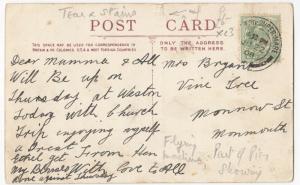 Tear & Stains
POST CARD
THIS SPACE MAY BE USED FOR CORRESPONDENCE IN
BRITAIN & ITS COLONIES, U.S.A. & MOST FOREIGN COUNTRIES.
ONLY THE ADDRESS
TO BE WRITTEN HERE.
Dear Mumma & All
Will Be up on
Thursday at Weston
today with Church
Trip enjoying myself
a Great
With Love to All
Mrs Bryant
Vine Tree
Monnow St
Monmouth
Flying
Part of Pier
Showing